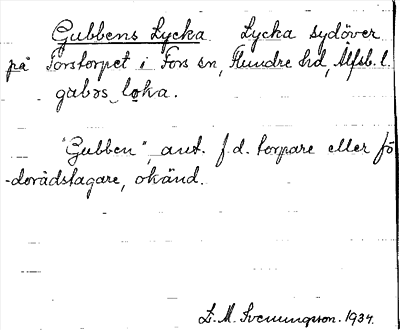 Gubbens Lycka Lycka sydöver
på Torstorpet i Fors sn, Flundre hd, Älfsb. l.
gubəs lȯka.
"Gubben", ant. f.d. torpare eller fö
-dorådstagare, okänd.
L. M. Svenungsson. 1934.